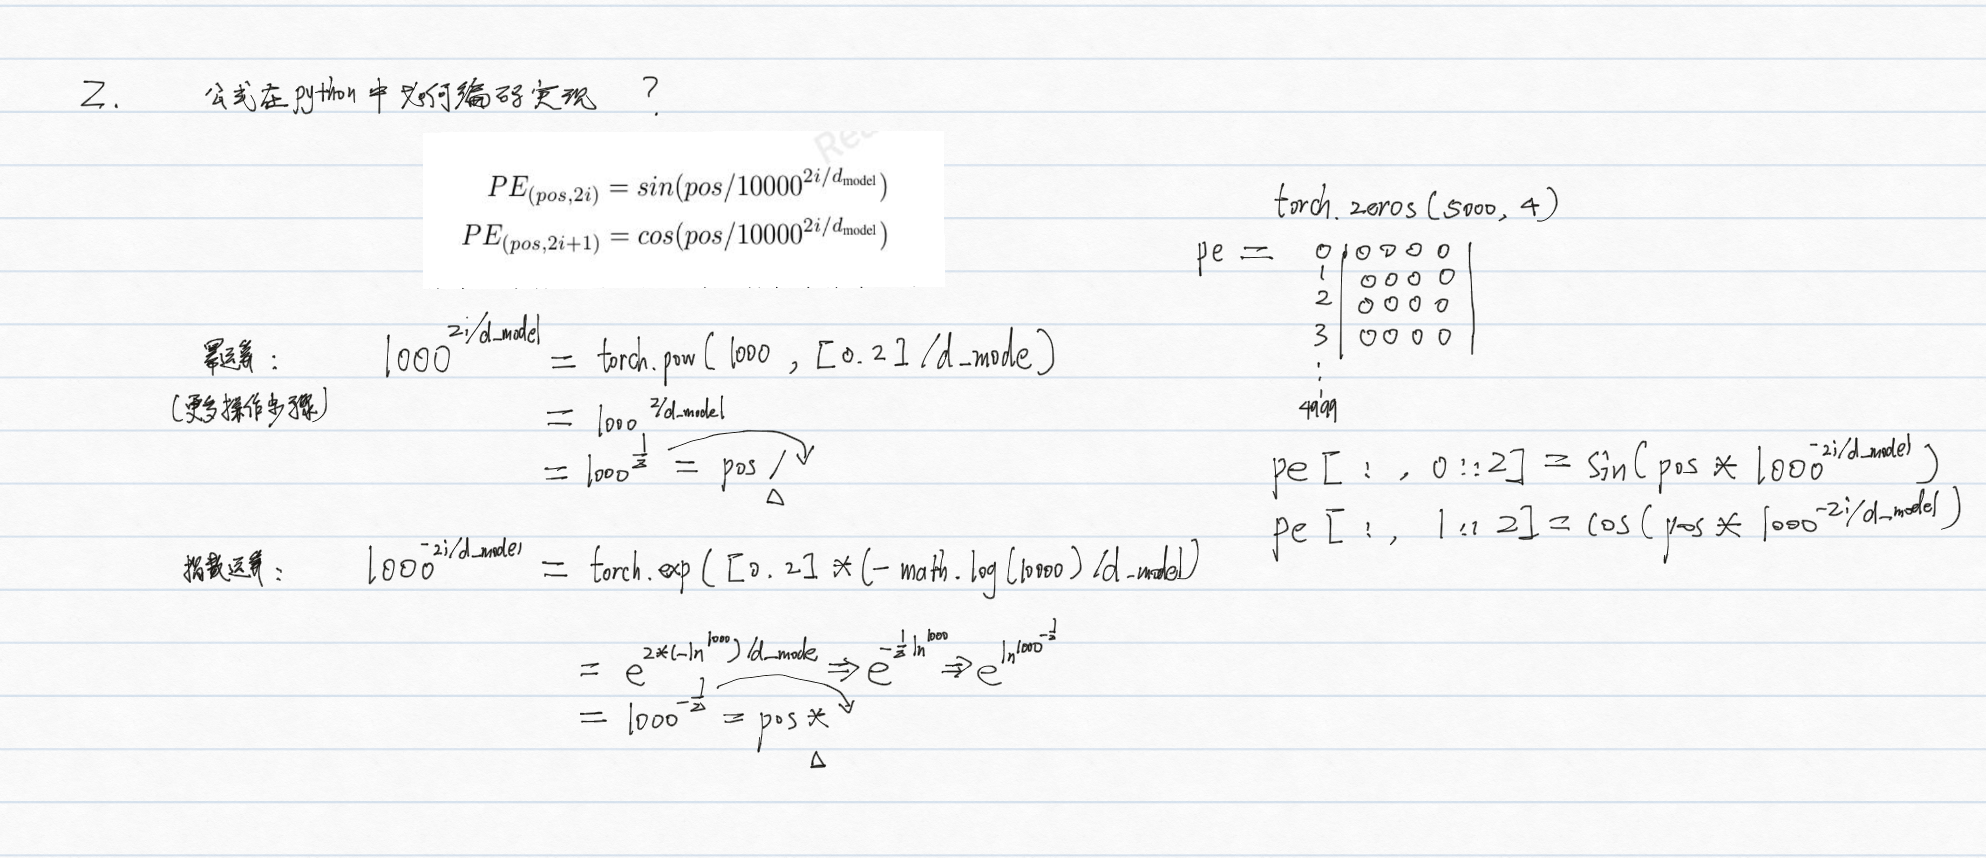 2. 公式在python中如何编码实现 ?
PE(pos,2i) = sin(pos/10000^2i/d_model)
PE(pos,2i+1) = cos(pos/10000^2i/d_model)
幂运算: 1000^2i/d_model = torch.pow(1000, [0.2]/d_mode)
(更多操作步骤) = 1000^2/d_model
= 1000^1/2 = pos / Δ
指数运算: 1000^-2i/d_model = torch.exp([0.2]*(-math.log(10000)/d_model)
= e^2*(-ln^1000)/d_mode ⇒ e^-1/2 ln^1000 ⇒ e^ln1000^-1/2
= 1000^-1/2 = pos * Δ
torch.zeros(5000, 4)
pe = 0 | 0 0 0 0 |
1 | 0 0 0 0 |
2 | 0 0 0 0 |
3 | 0 0 0 0 |
⋮
4999
pe[:, 0::2] = sin(pos * 1000^-2i/d_model)
pe[:, 1::2] = cos(pos * 1000^-2i/d_model)